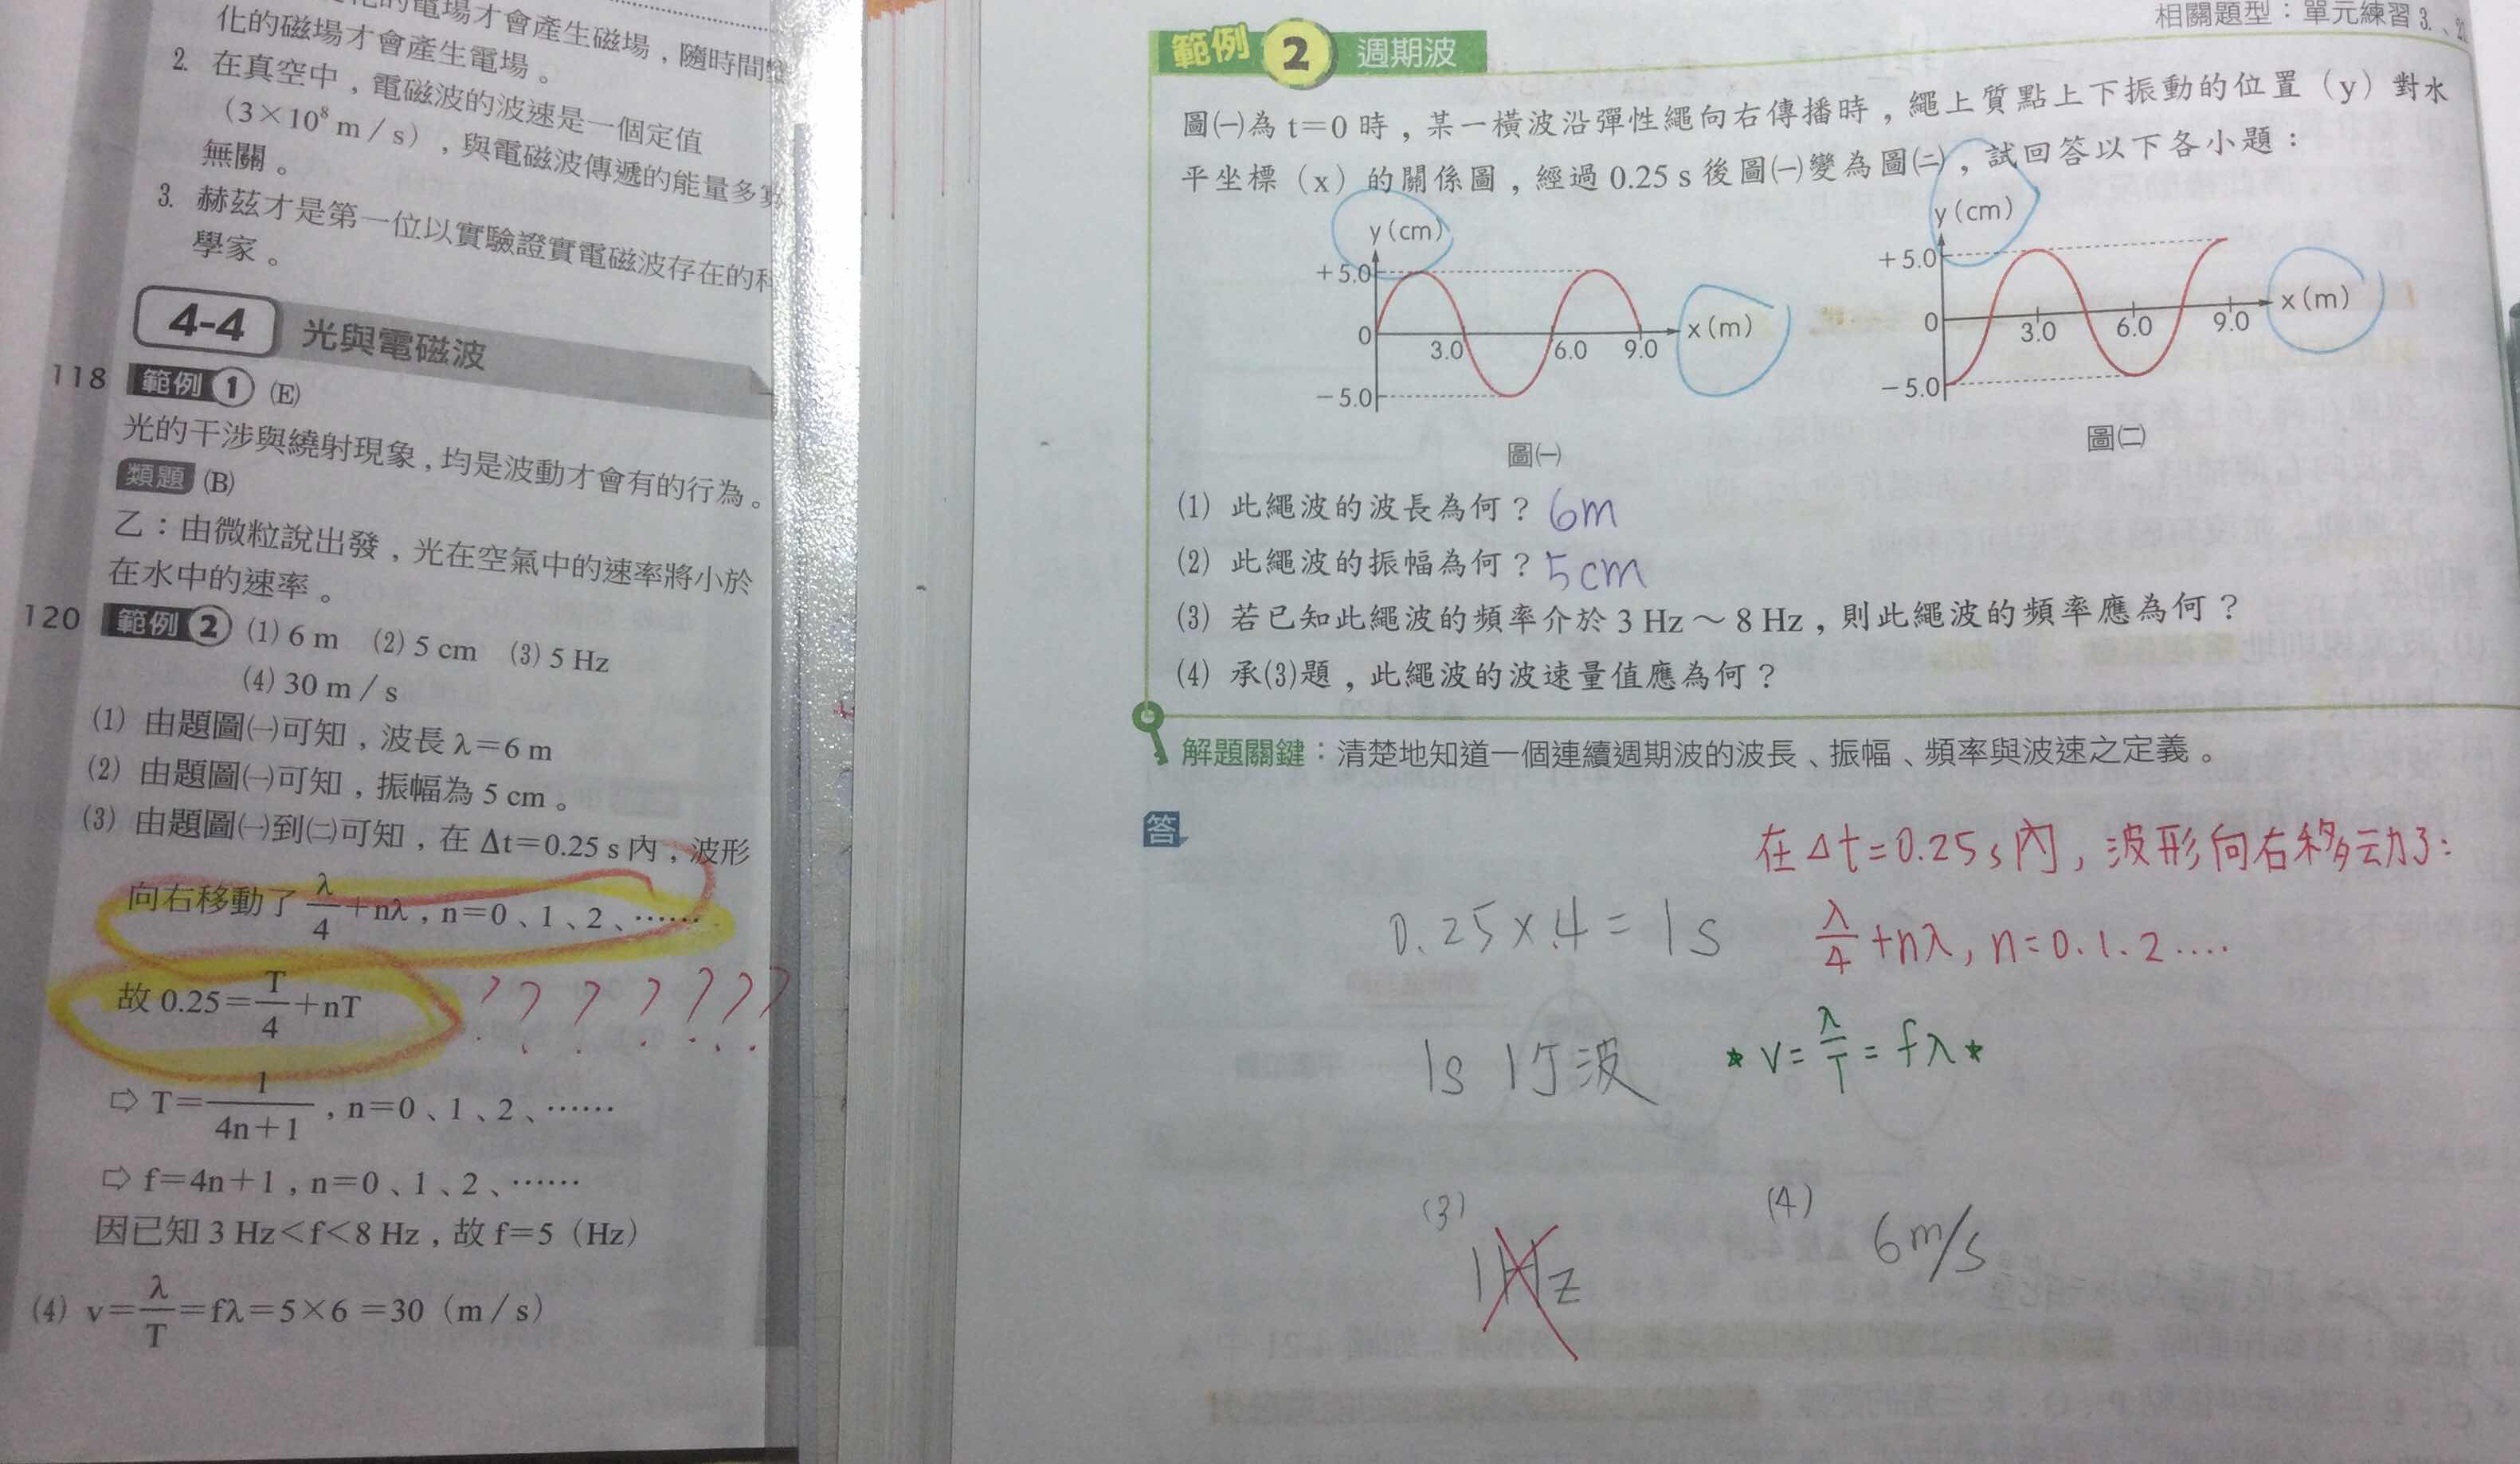 化的電場才會產生磁場，隨時間
化的磁場才會產生電場。
2. 在真空中，電磁波的波速是一個定值
（3×10⁸ m／s），與電磁波傳遞的能量多寡
無關。
3. 赫茲才是第一位以實驗證實電磁波存在的科
學家。
4-4 光與電磁波
118 範例 1 (E)
光的干涉與繞射現象，均是波動才會有的行為。
類題 (B)
乙：由微粒說出發，光在空氣中的速率將小於
在水中的速率。
120 範例 2 (1) 6 m (2) 5 cm (3) 5 Hz
(4) 30 m／s
(1) 由題圖㈠可知，波長 λ＝6 m
(2) 由題圖㈠可知，振幅為 5 cm。
(3) 由題圖㈠到㈡可知，在 Δt＝0.25 s 內，波形
向右移動了 λ/4＋nλ，n＝0、1、2、……
故 0.25＝T/4＋nT ???????
⇨ T＝1/(4n＋1)，n＝0、1、2、……
⇨ f＝4n＋1，n＝0、1、2、……
因已知 3 Hz＜f＜8 Hz，故 f＝5（Hz）
(4) v＝λ/T＝fλ＝5×6＝30（m／s）
相關題型：單元練習 3.、
範例 2 週期波
圖㈠為 t＝0 時，某一橫波沿彈性繩向右傳播時，繩上質點上下振動的位置（y）對水
平坐標（x）的關係圖，經過 0.25 s 後圖㈠變為圖㈡，試回答以下各小題：
y(cm)
＋5.0
0
3.0 6.0 9.0 x(m)
－5.0
圖㈠
y(cm)
＋5.0
0
3.0 6.0 9.0 x(m)
－5.0
圖㈡
(1) 此繩波的波長為何？ 6m
(2) 此繩波的振幅為何？ 5cm
(3) 若已知此繩波的頻率介於 3 Hz～8 Hz，則此繩波的頻率應為何？
(4) 承(3)題，此繩波的波速量值應為何？
解題關鍵：清楚地知道一個連續週期波的波長、振幅、頻率與波速之定義。
答
在Δt=0.25s內，波形向右移动了:
0.25×4=1s
λ/4+nλ, n=0.1.2....
1s 1个波
★ v=λ/T=fλ ★
(3) 1Hz
(4) 6m/s